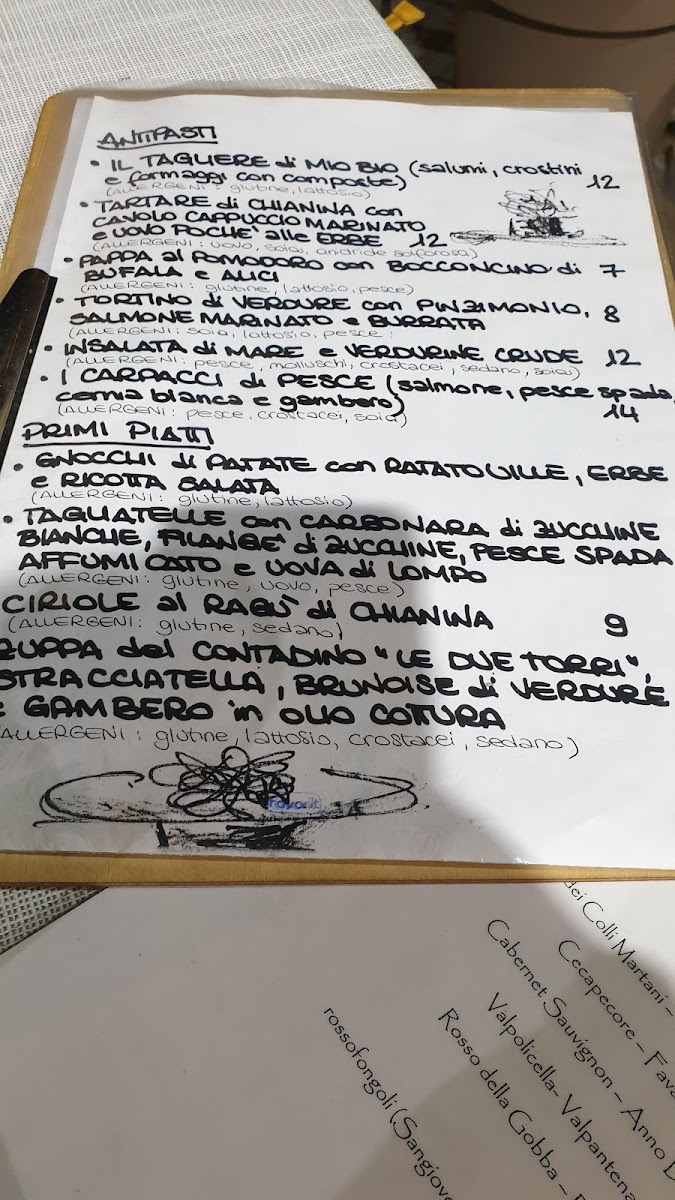 ANTIPASTI
• IL TAGLIERE di MIO BIO (salumi, crostini
e formaggi con composte) 12
(ALLERGENI: glutine, lattosio)
• TARTARE di CHIANINA con
CAVOLO CAPPUCCIO MARINATO
e UOVO POCHE' alle ERBE 12
(ALLERGENI: uovo, soia, anidride solforosa)
• PAPPA al POMODORO con BOCCONCINO di 7
BUFALA e ALICI
(ALLERGENI: glutine, lattosio, pesce)
• TORTINO di VERDURE con PINZIMONIO, 8
SALMONE MARINATO e BURRATA
(ALLERGENI: soia, lattosio, pesce)
• INSALATA di MARE e VERDURINE CRUDE 12
(ALLERGENI: pesce, molluschi, crostacei, sedano, soia)
• I CARPACCI di PESCE (salmone, pesce spada,
cernia bianca e gambero) 14
(ALLERGENI: pesce, crostacei, soia)
PRIMI PIATTI
• GNOCCHI di PATATE con RATATOUILLE, ERBE
e RICOTTA SALATA
(ALLERGENI: glutine, lattosio)
• TAGLIATELLE con CARBONARA di ZUCCHINE
BIANCHE, FILANGE' di ZUCCHINE, PESCE SPADA
AFFUMICATO e UOVA di LOMPO
(ALLERGENI: glutine, uovo, pesce)
CIRIOLE al RAGÙ di CHIANINA 9
(ALLERGENI: glutine, sedano)
ZUPPA del CONTADINO "LE DUE TORRI",
STRACCIATELLA, BRUNOISE di VERDURE
E GAMBERO in OLIO COTTURA
(ALLERGENI: glutine, lattosio, crostacei, sedano)
dei Colli Martani -
Cecapecore - Fava
Cabernet Sauvignon - Anno D
Valpolicella- Valpantena
Rosso della Gobba -
rossofongoli (Sangiov